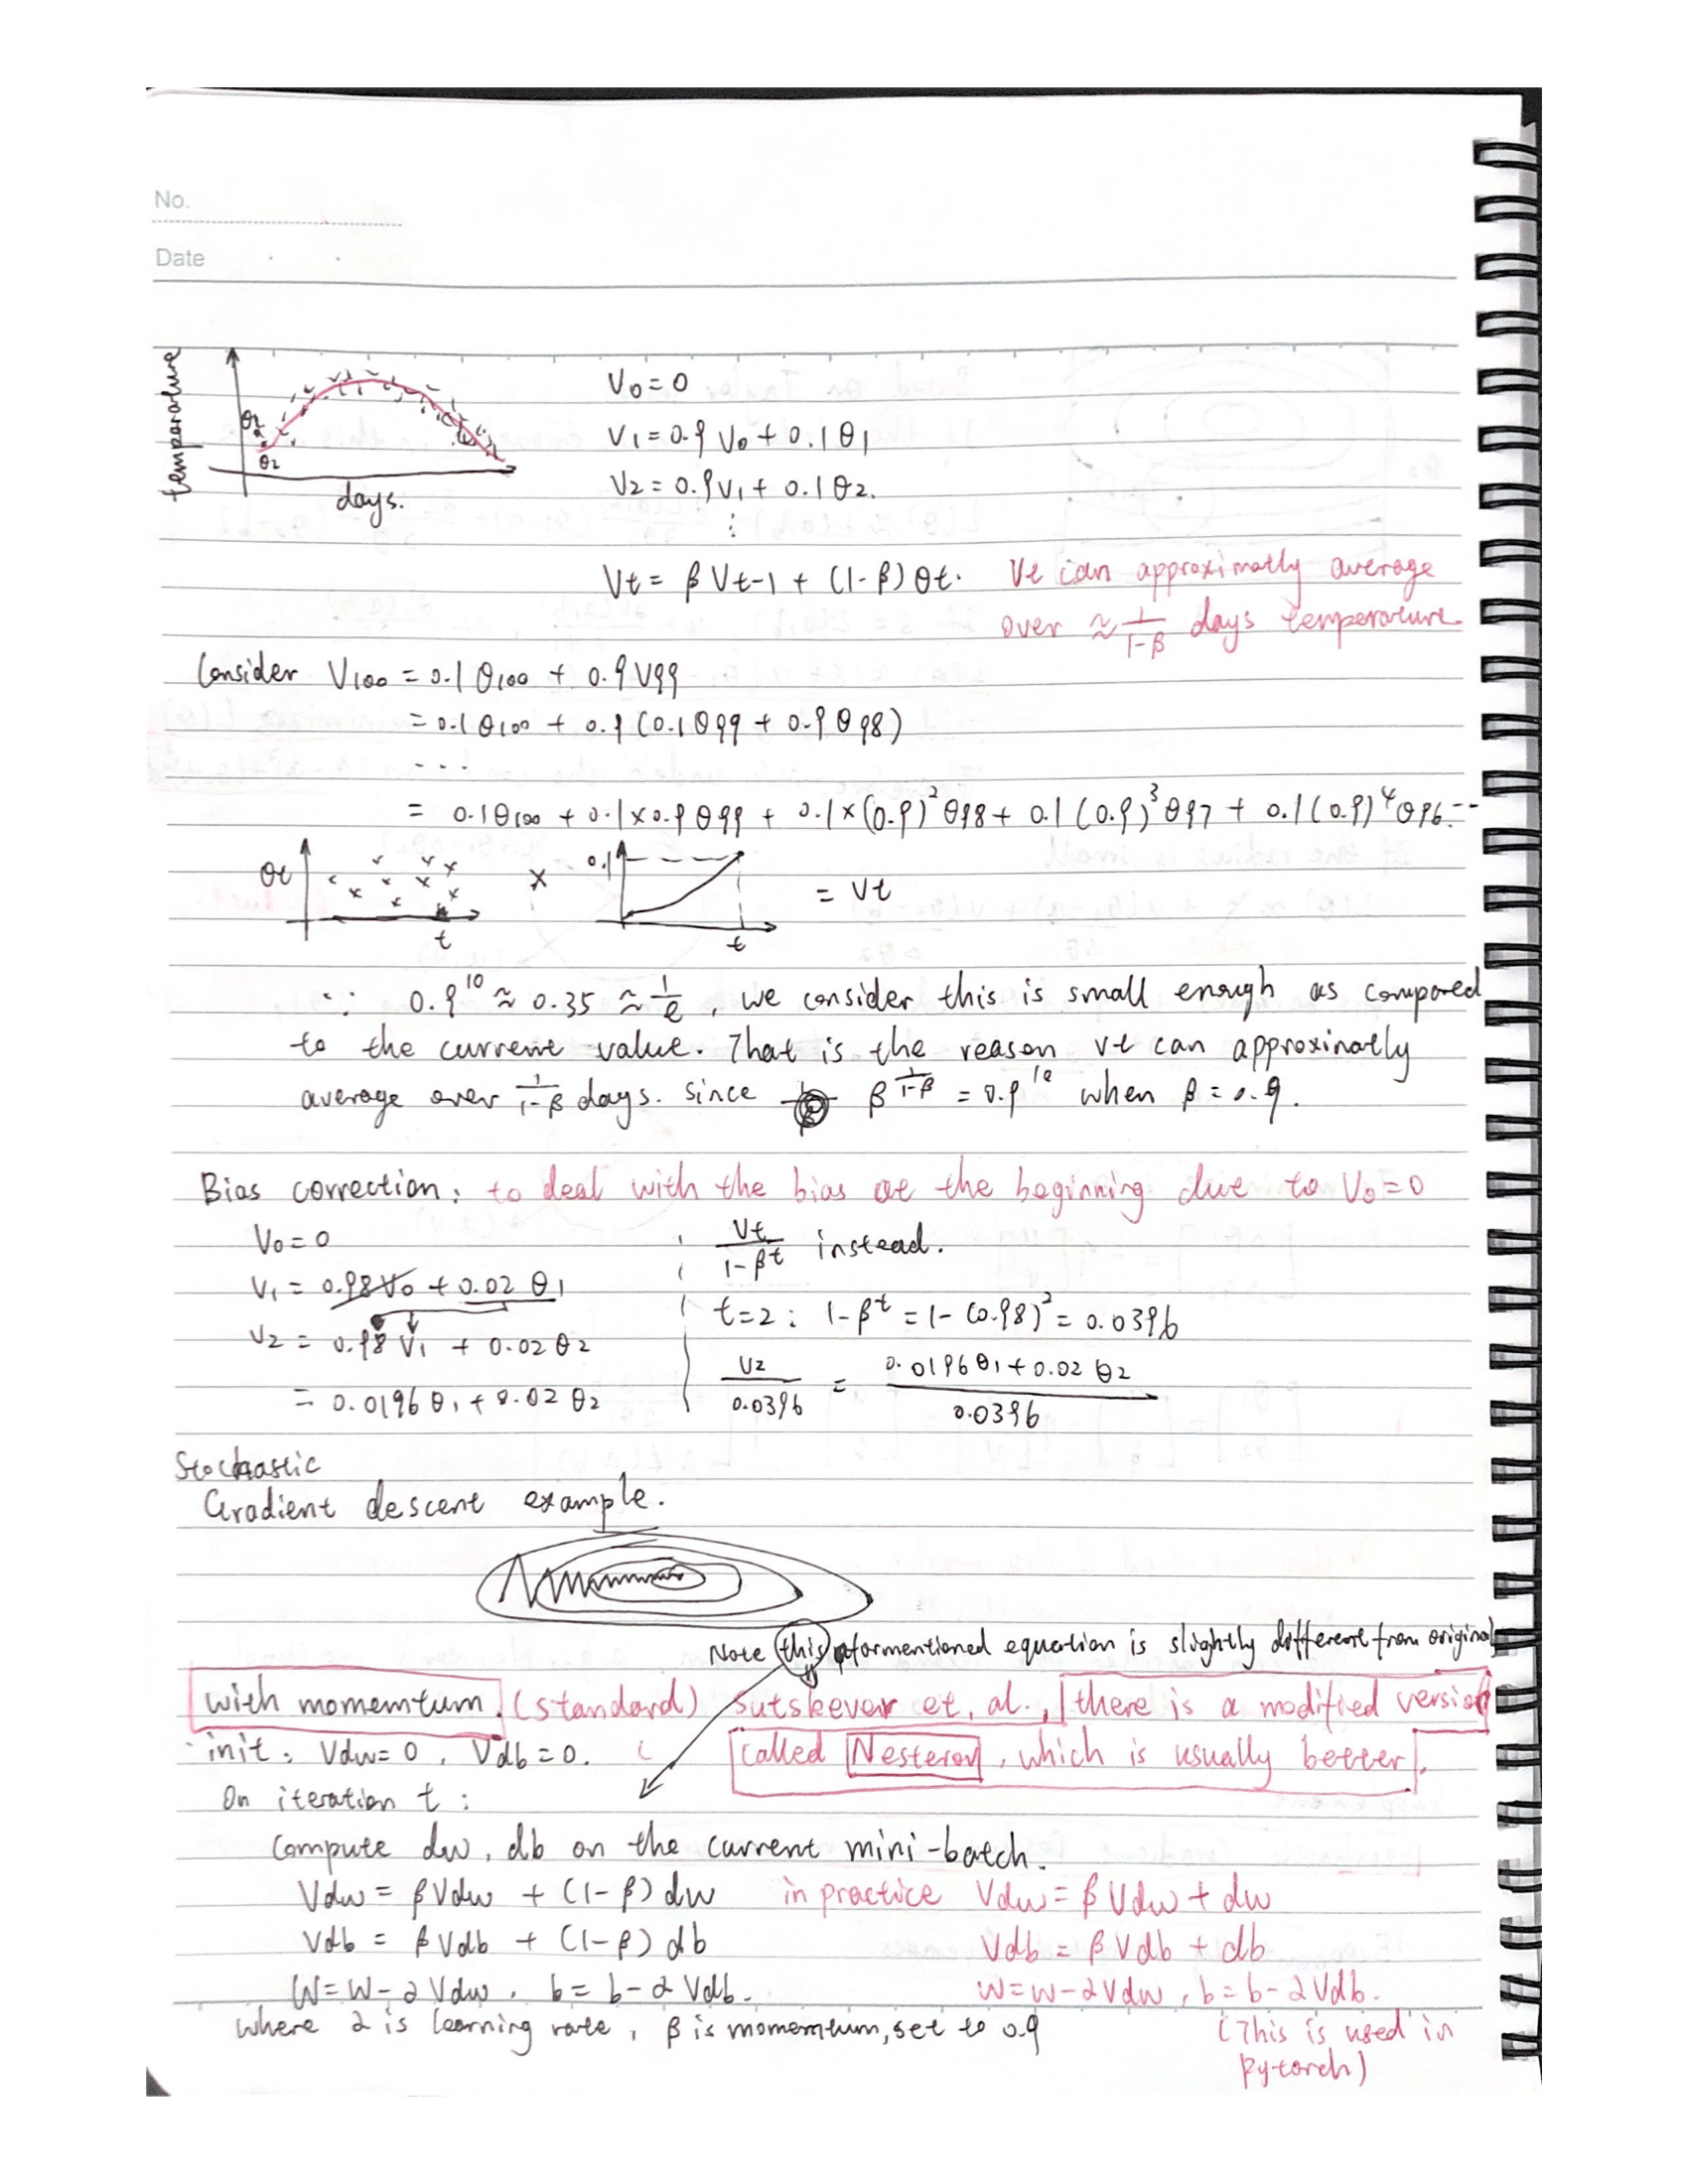 No.
Date
temperature
θ2
θ2
days.
V0 = 0
V1 = 0.9 V0 + 0.1 θ1
V2 = 0.9 V1 + 0.1 θ2.
⋮
Vt = β Vt-1 + (1-β) θt. Vt can approximatly average
over ≈ 1/(1-β) days temperature
Consider V100 = 0.1 θ100 + 0.9 V99
= 0.1 θ100 + 0.9 (0.1 θ99 + 0.9 θ98)
...
= 0.1 θ100 + 0.1 × 0.9 θ99 + 0.1 × (0.9)^2 θ98 + 0.1 (0.9)^3 θ97 + 0.1 (0.9)^4 θ96 ...
θt t × 0.1 t = Vt
∵ 0.9^10 ≈ 0.35 ≈ 1/e, we consider this is small enough as compared
to the current value. That is the reason Vt can approximatly
average over 1/(1-β) days. since β^(1/(1-β)) = 0.9^10 when β = 0.9.
Bias correction: to deal with the bias at the beginning due to V0 = 0
V0 = 0
V1 = 0.98 V0 + 0.02 θ1
V2 = 0.98 V1 + 0.02 θ2
= 0.0196 θ1 + 0.02 θ2
Vt/(1-β^t) instead.
t=2: 1-β^t = 1-(0.98)^2 = 0.0396
V2/0.0396 = (0.0196 θ1 + 0.02 θ2)/0.0396
Stochastic
Gradient descent example.
Note this aformentioned equation is slightly different from original
with momemtum. (standard) Sutskever et. al., there is a modified version
called Nesterov, which is usually better.
init: Vdw = 0, Vdb = 0.
On iteration t:
Compute dw, db on the current mini-batch.
Vdw = β Vdw + (1-β) dw in practice Vdw = β Vdw + dw
Vdb = β Vdb + (1-β) db Vdb = β Vdb + db
W = W - α Vdw, b = b - α Vdb. W = W - α Vdw, b = b - α Vdb.
where α is learning rate, β is momemtum, set to 0.9 (This is used in
pytorch)